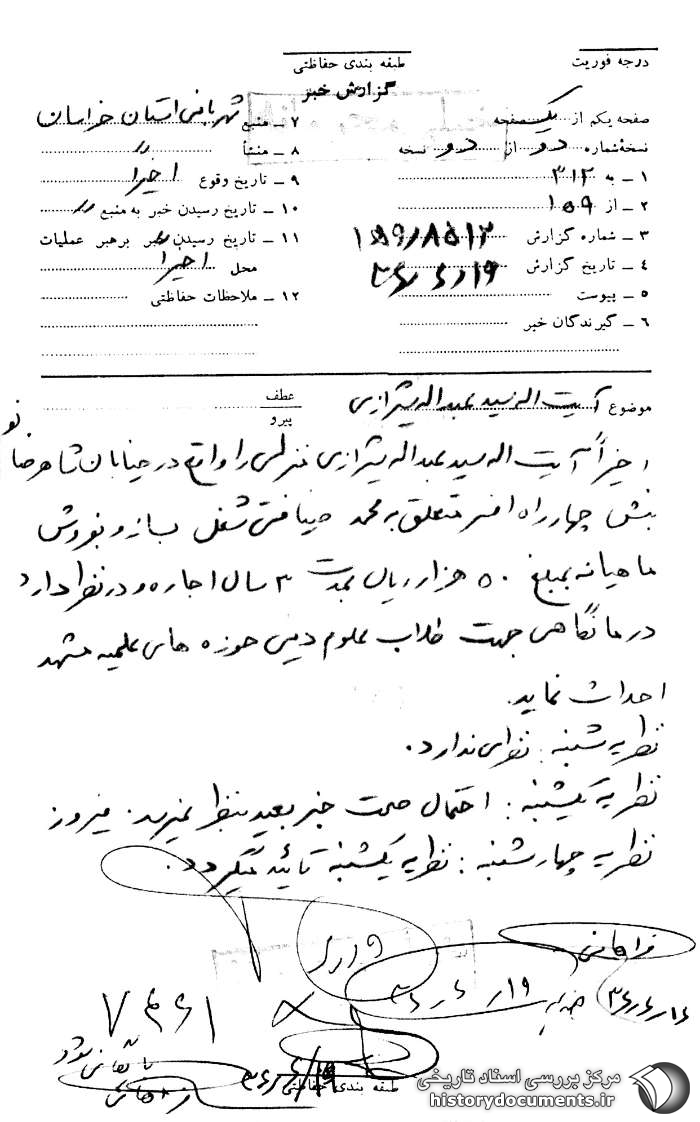 درجه فوریت
طبقه بندی حفاظتی
گزارش خبر
صفحه یکم از یک صفحه
نسخهٔ شماره دو از دو نسخه
۱ – به ۳۱۲
۲ – از ۱۵۹
۳ – شماره گزارش ۱۵۹/۸۵۱۲
۴ – تاریخ گزارش ۳۶/۶/۱۹
۵ – پیوست
۶ – گیرندگان خبر
۷ – منبع شهربانی استان خراسان
۸ – منشأ
۹ – تاریخ وقوع اخیرا
۱۰ – تاریخ رسیدن خبر به منبع
۱۱ – تاریخ رسیدن خبر برهبر عملیات
محل اخیرا
۱۲ – ملاحظات حفاظتی
موضوع آیت اله سید عبداله شیرازی
عطف
پیرو
اخیراً آیت اله سید عبداله شیرازی منزلی را واقع در خیابان شاهرضا نو
نبش چهارراه افسر متعلق به محمد ضیافتی شغل بساز و بفروش
ماهیانه بمبلغ ۵۰ هزار ریال بمدت ۳ سال اجاره و در نظر دارد
درمانگاهی جهت طلاب علوم دینی حوزه های علمیه مشهد
احداث نماید.
نظریه شنبه : نظری ندارد.
نظریه یکشنبه : احتمال صحت خبر بعید بنظر نمیرسد. فیروز
نظریه چهارشنبه : نظریه یکشنبه تائید میگردد.
فراهانی
۳۶/۶/۱۶
۱۹/۶/۳۶
۷۴۶۱
بایگانی شود
۳۶/۶/۱۹
طبقه بندی حفاظتی
مرکز بررسی اسناد تاریخی
historydocuments.ir